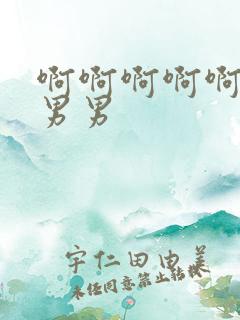 啊啊啊啊啊
男男
宇仁田由美
未经同意禁止转载